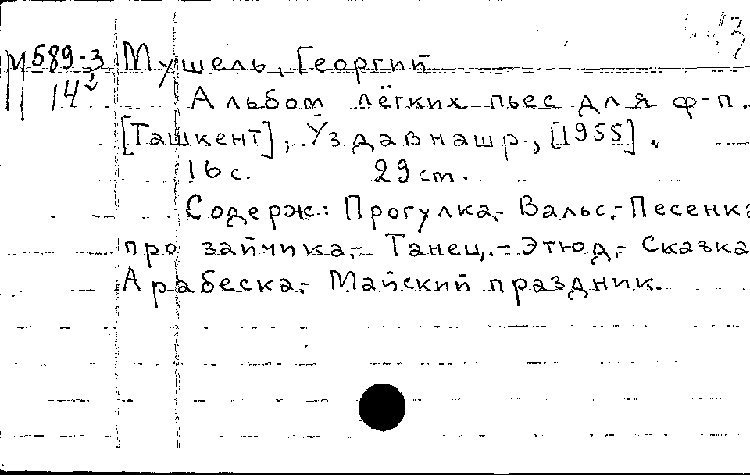 М 589-3 Мушель, Георгий
14² Альбом лёгких пьес для ф-п.
[Ташкент], Уздавнашр, [1955].
16 с. 29 cm.
Содерж.: Прогулка,- Вальс,- Песенка
про зайчика,- Танец,- Этюд,- Сказка
Арабеска,- Майский праздник.